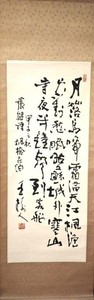 月落烏啼霜滿天江楓漁
火對愁眠姑蘇城外寒山
寺夜半鐘聲到客船
甲子秋
張繼詩楓橋夜泊